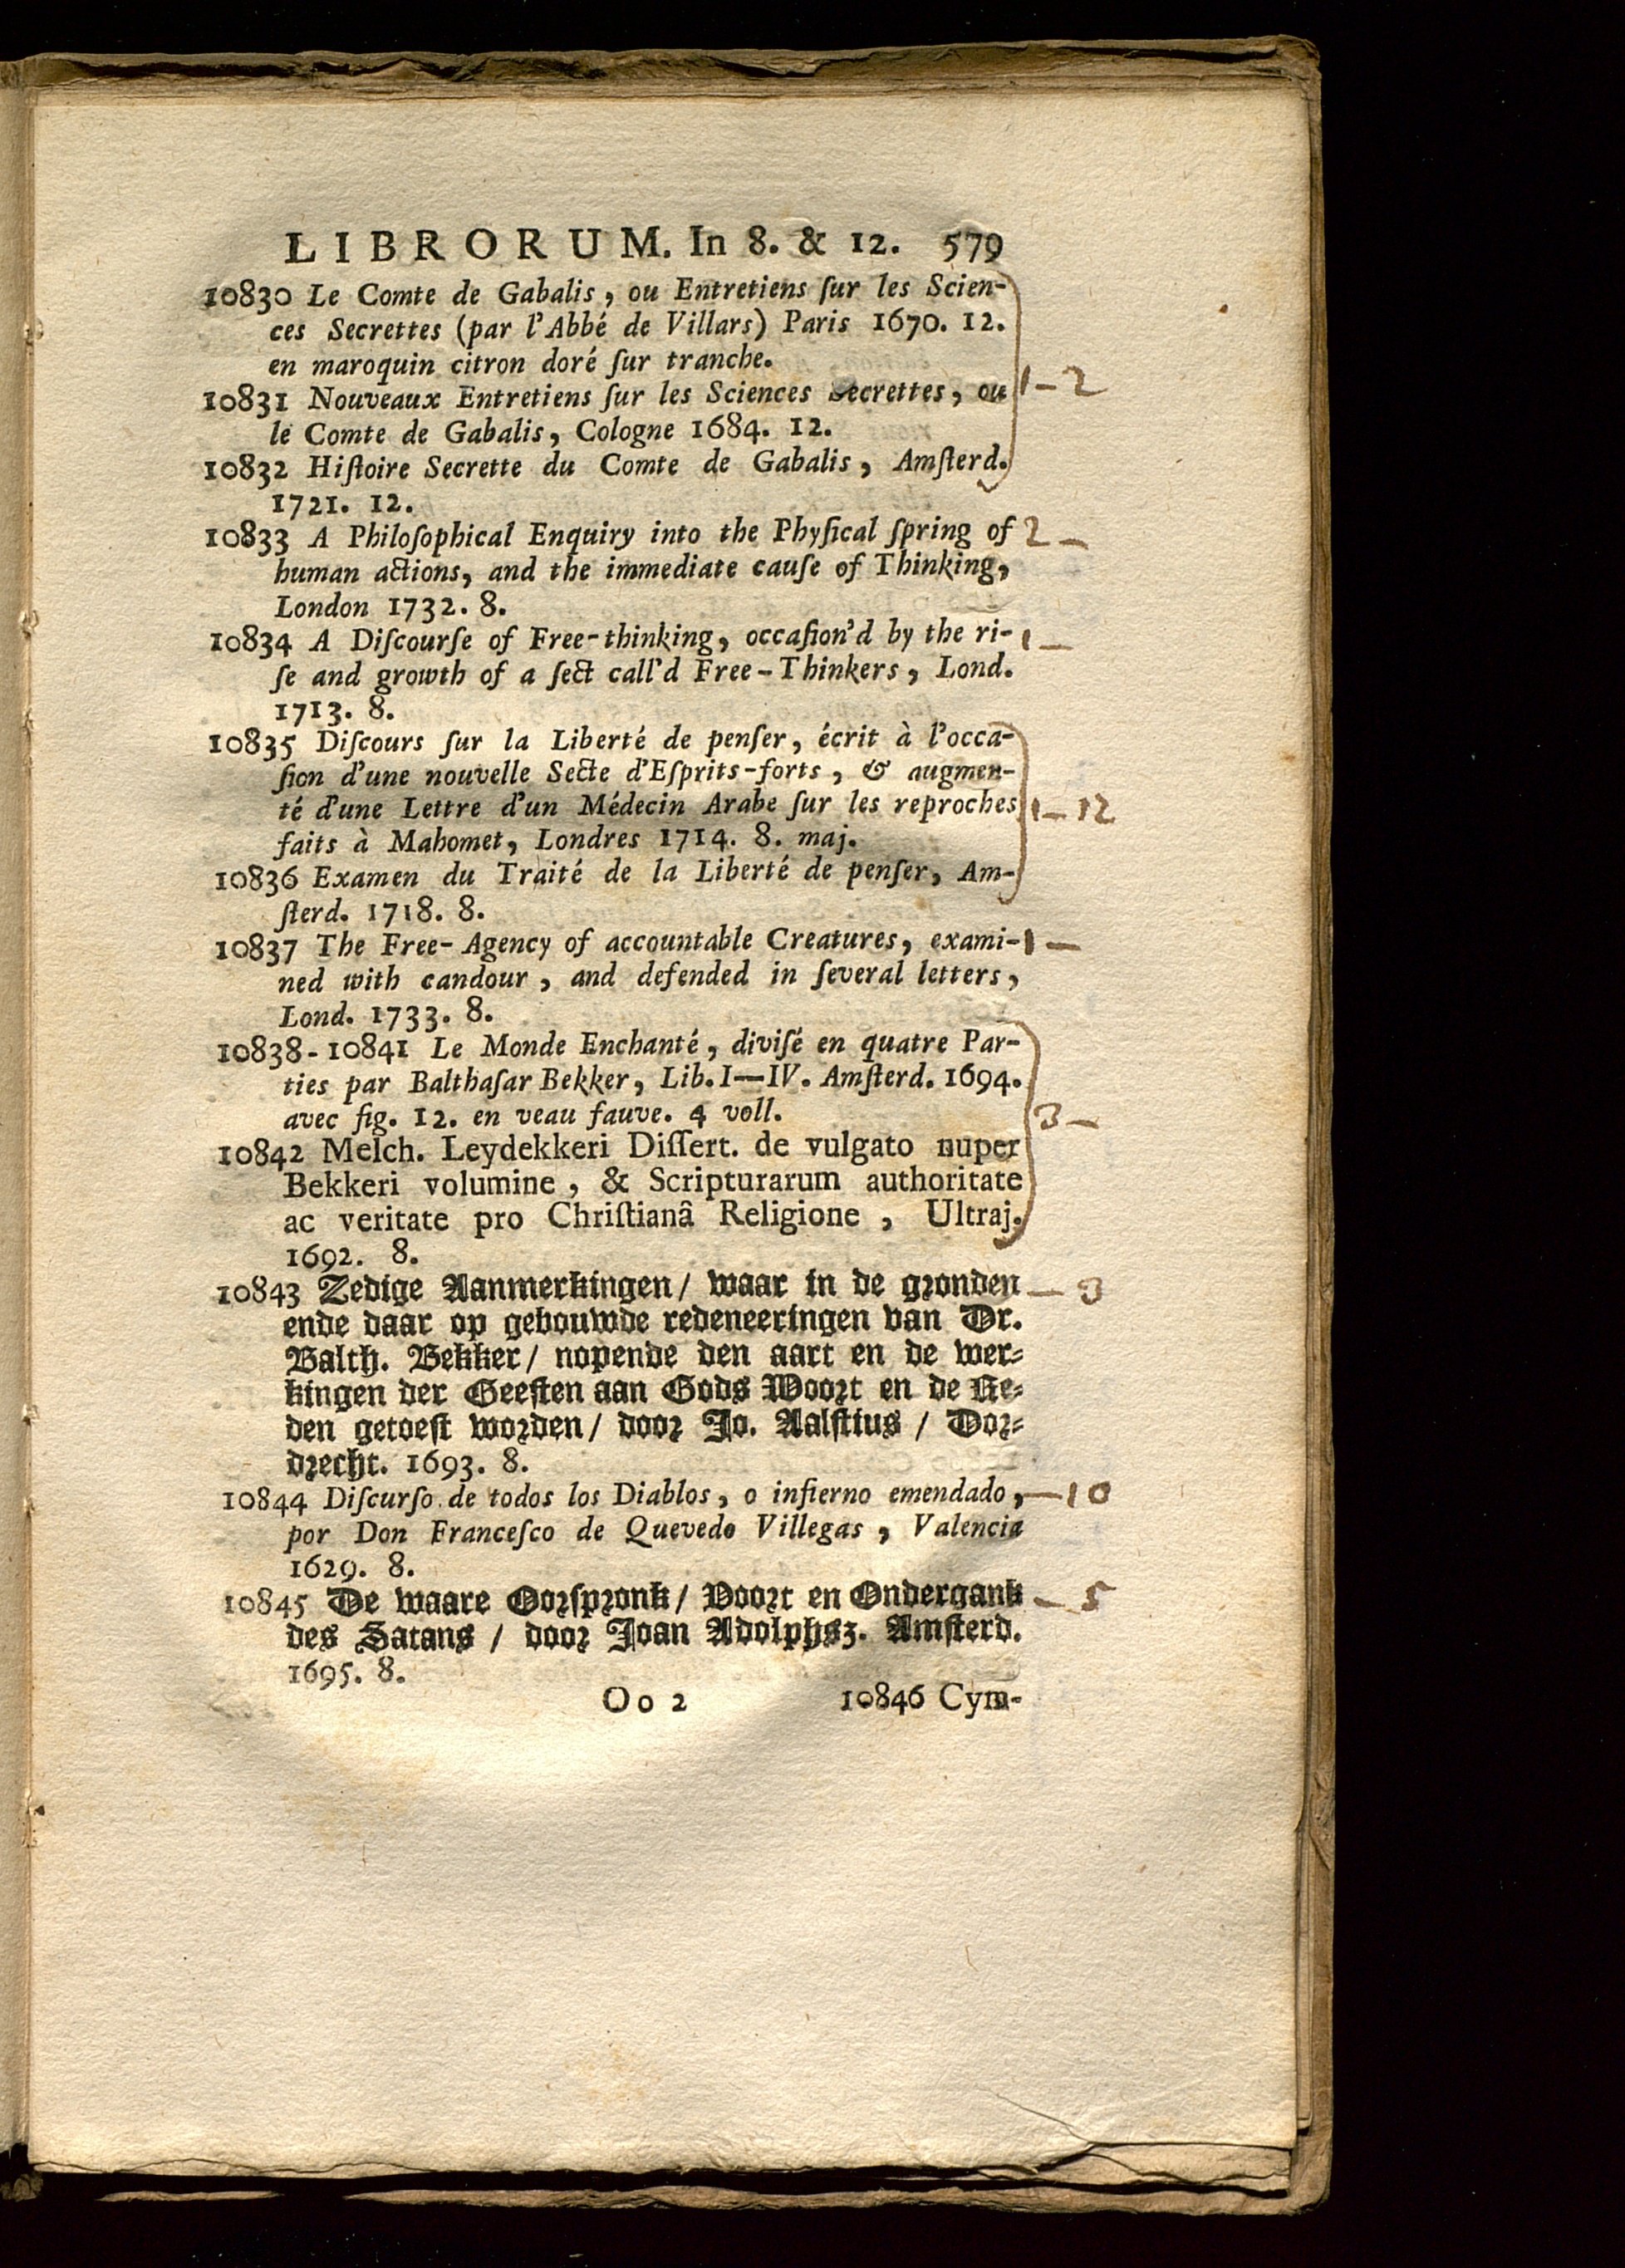 LIBRORUM. In 8. & 12. 579
10830 Le Comte de Gabalis, ou Entretiens ſur les Scien-
ces Secrettes (par l'Abbé de Villars) Paris 1670. 12.
en maroquin citron doré ſur tranche.
10831 Nouveaux Entretiens ſur les Sciences Secrettes, ou 1-2
le Comte de Gabalis, Cologne 1684. 12.
10832 Hiſtoire Secrette du Comte de Gabalis, Amſterd.
1721. 12.
10833 A Philoſophical Enquiry into the Phyſical ſpring of 2-
human actions, and the immediate cauſe of Thinking,
London 1732. 8.
10834 A Diſcourſe of Free-thinking, occaſion'd by the ri- 1-
ſe and growth of a ſect call'd Free-Thinkers, Lond.
1713. 8.
10835 Diſcours ſur la Liberté de penſer, écrit à l'occa-
ſion d'une nouvelle Secte d'Eſprits-forts, & augmen-
té d'une Lettre d'un Médecin Arabe ſur les reproches 1-12
faits à Mahomet, Londres 1714. 8. maj.
10836 Examen du Traité de la Liberté de penſer, Am-
ſterd. 1718. 8.
10837 The Free-Agency of accountable Creatures, exami- 1-
ned with candour, and defended in ſeveral letters,
Lond. 1733. 8.
10838-10841 Le Monde Enchanté, diviſé en quatre Par-
ties par Balthaſar Bekker, Lib. I—IV. Amſterd. 1694.
avec fig. 12. en veau fauve. 4 voll. 3-
10842 Melch. Leydekkeri Diſſert. de vulgato nuper
Bekkeri volumine, & Scripturarum authoritate
ac veritate pro Chriſtianâ Religione, Ultraj.
1692. 8.
10843 Zedige Aanmerkingen/ waar in de gronden -3
ende daar op gebouwde redeneeringen van Dr.
Balth. Bekker/ nopende den aart en de wer-
kingen der Geeſten aan Gods Woort en de Re-
den getoeſt worden/ door Jo. Aalſtius/ Dor-
drecht. 1693. 8.
10844 Diſcurſo de todos los Diablos, o infierno emendado, -10
por Don Franceſco de Quevedo Villegas, Valencia
1629. 8.
10845 De waare Oorſpronk/ Voort en Ondergank -5
des Satans/ door Joan Adolphsz. Amſterd.
1695. 8.
Oo 2 10846 Cym-